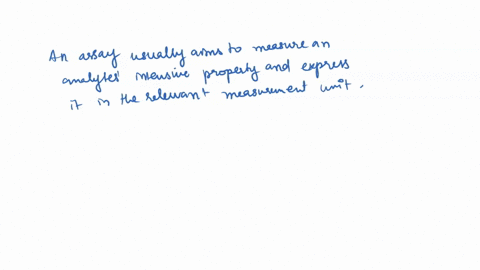 An assay usually aims to measure an
analytes' intensive property and express
it in the relevant measurement unit.